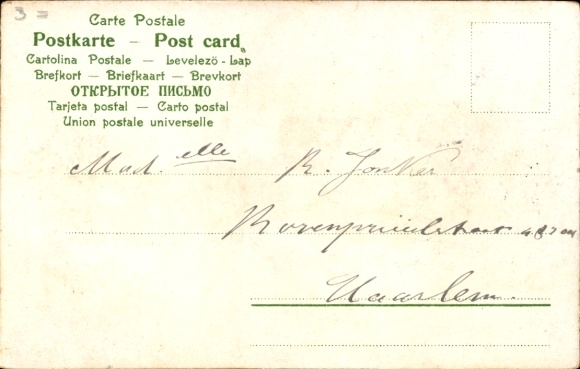 3 =
Carte Postale
Postkarte — Post card
Cartolina Postale — Levelező-Lap
Brefkort — Briefkaart — Brevkort
ОТКРЫТОЕ ПИСЬМО
Tarjeta postal — Carto postal
Union postale universelle
Mad.elle R. Jonker
Haarlem.